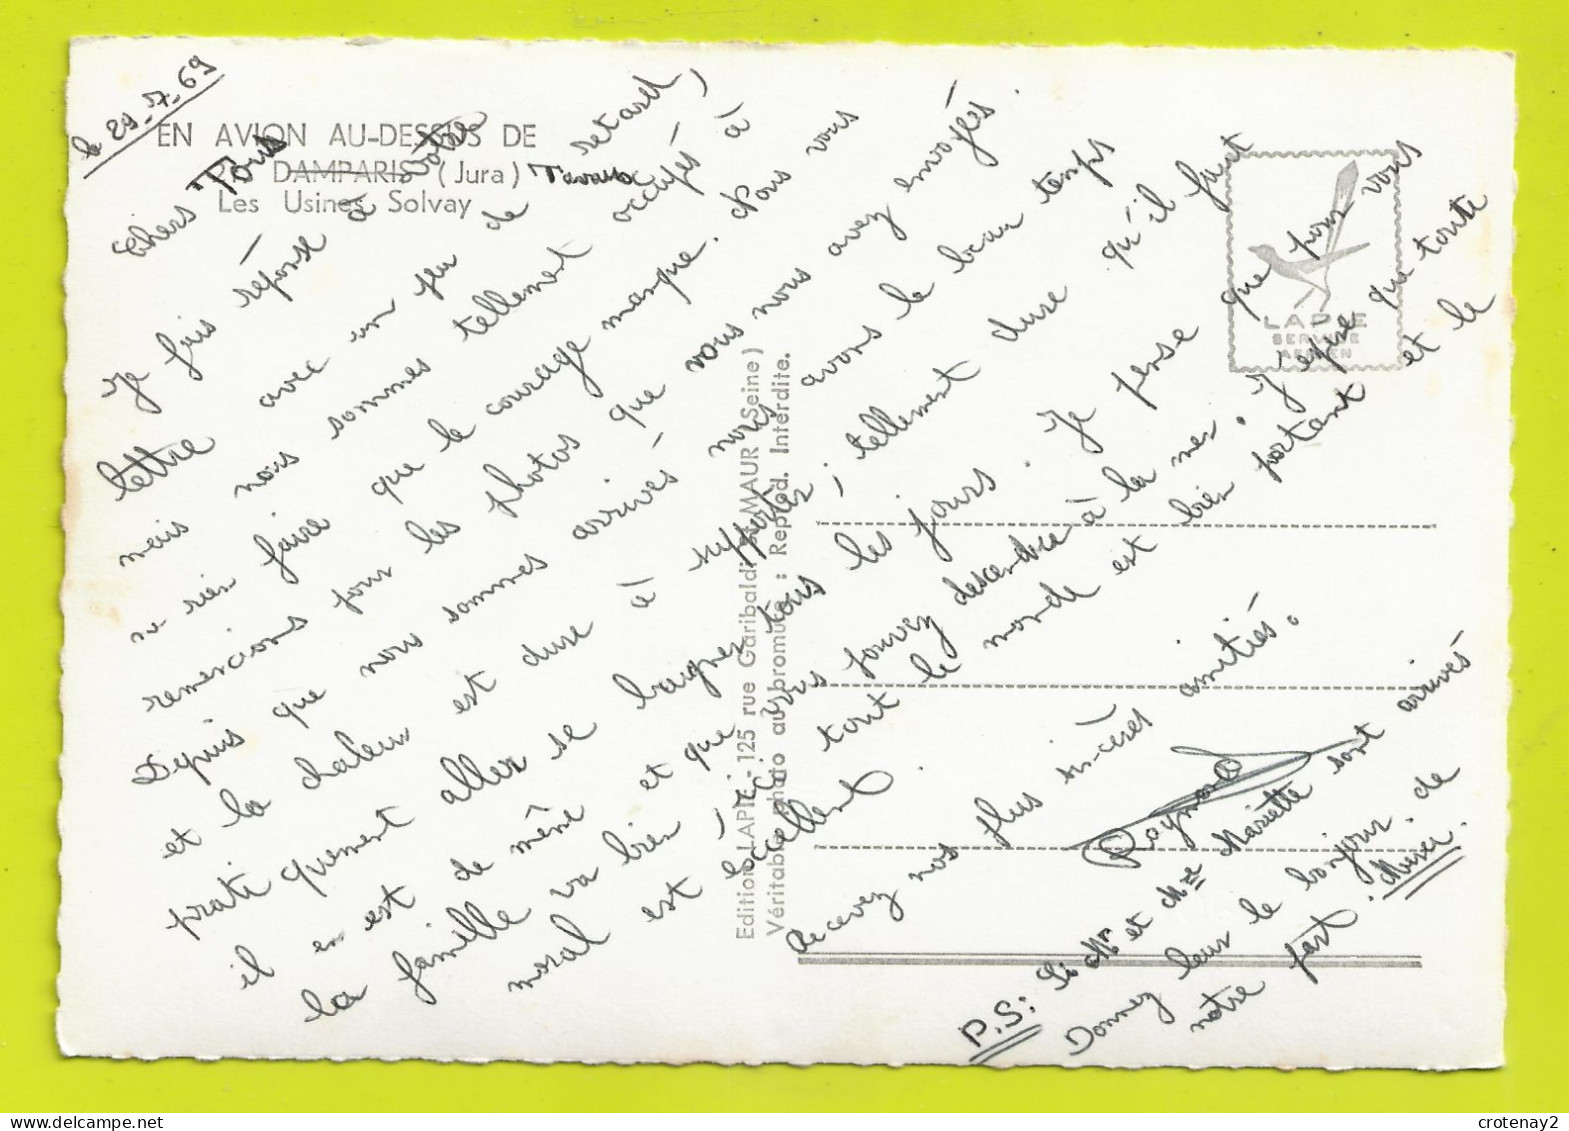 le 29-7-69
EN AVION AU-DESSUS DE
DAMPARIS (Jura) Tavaux
Les Usines Solvay
Chers Tous
Je fais réponse à votre
lettre avec un peu de retard,
mais nous sommes tellement occupés à
ne rien faire que le courage manque. Nous vous
remercions pour les photos que vous nous avez envoyés.
Depuis que nous sommes arrivés nous avons le beau temps
et la chaleur est dure à supporter, tellement dure qu'il faut
pratiquement aller se baigner tous les jours. Je pense que pour vous
il en est de même et que vous pouvez descendre à la mer. J'espère que toute
la famille va bien, ici tout le monde est bien portant et le
moral est excellent.
Recevez nos plus sincères amitiés.
Raymond
P.S: Si Mr et Mme Mariette sont arrivés
Donnez leur le bonjour de
notre part. Merci.
Edition LAPIE - 125 rue Garibaldi, St MAUR (Seine)
Véritable photo au bromure : Reprod. Interdite.
LAPIE
SERVICE
AERIEN
crotenay2